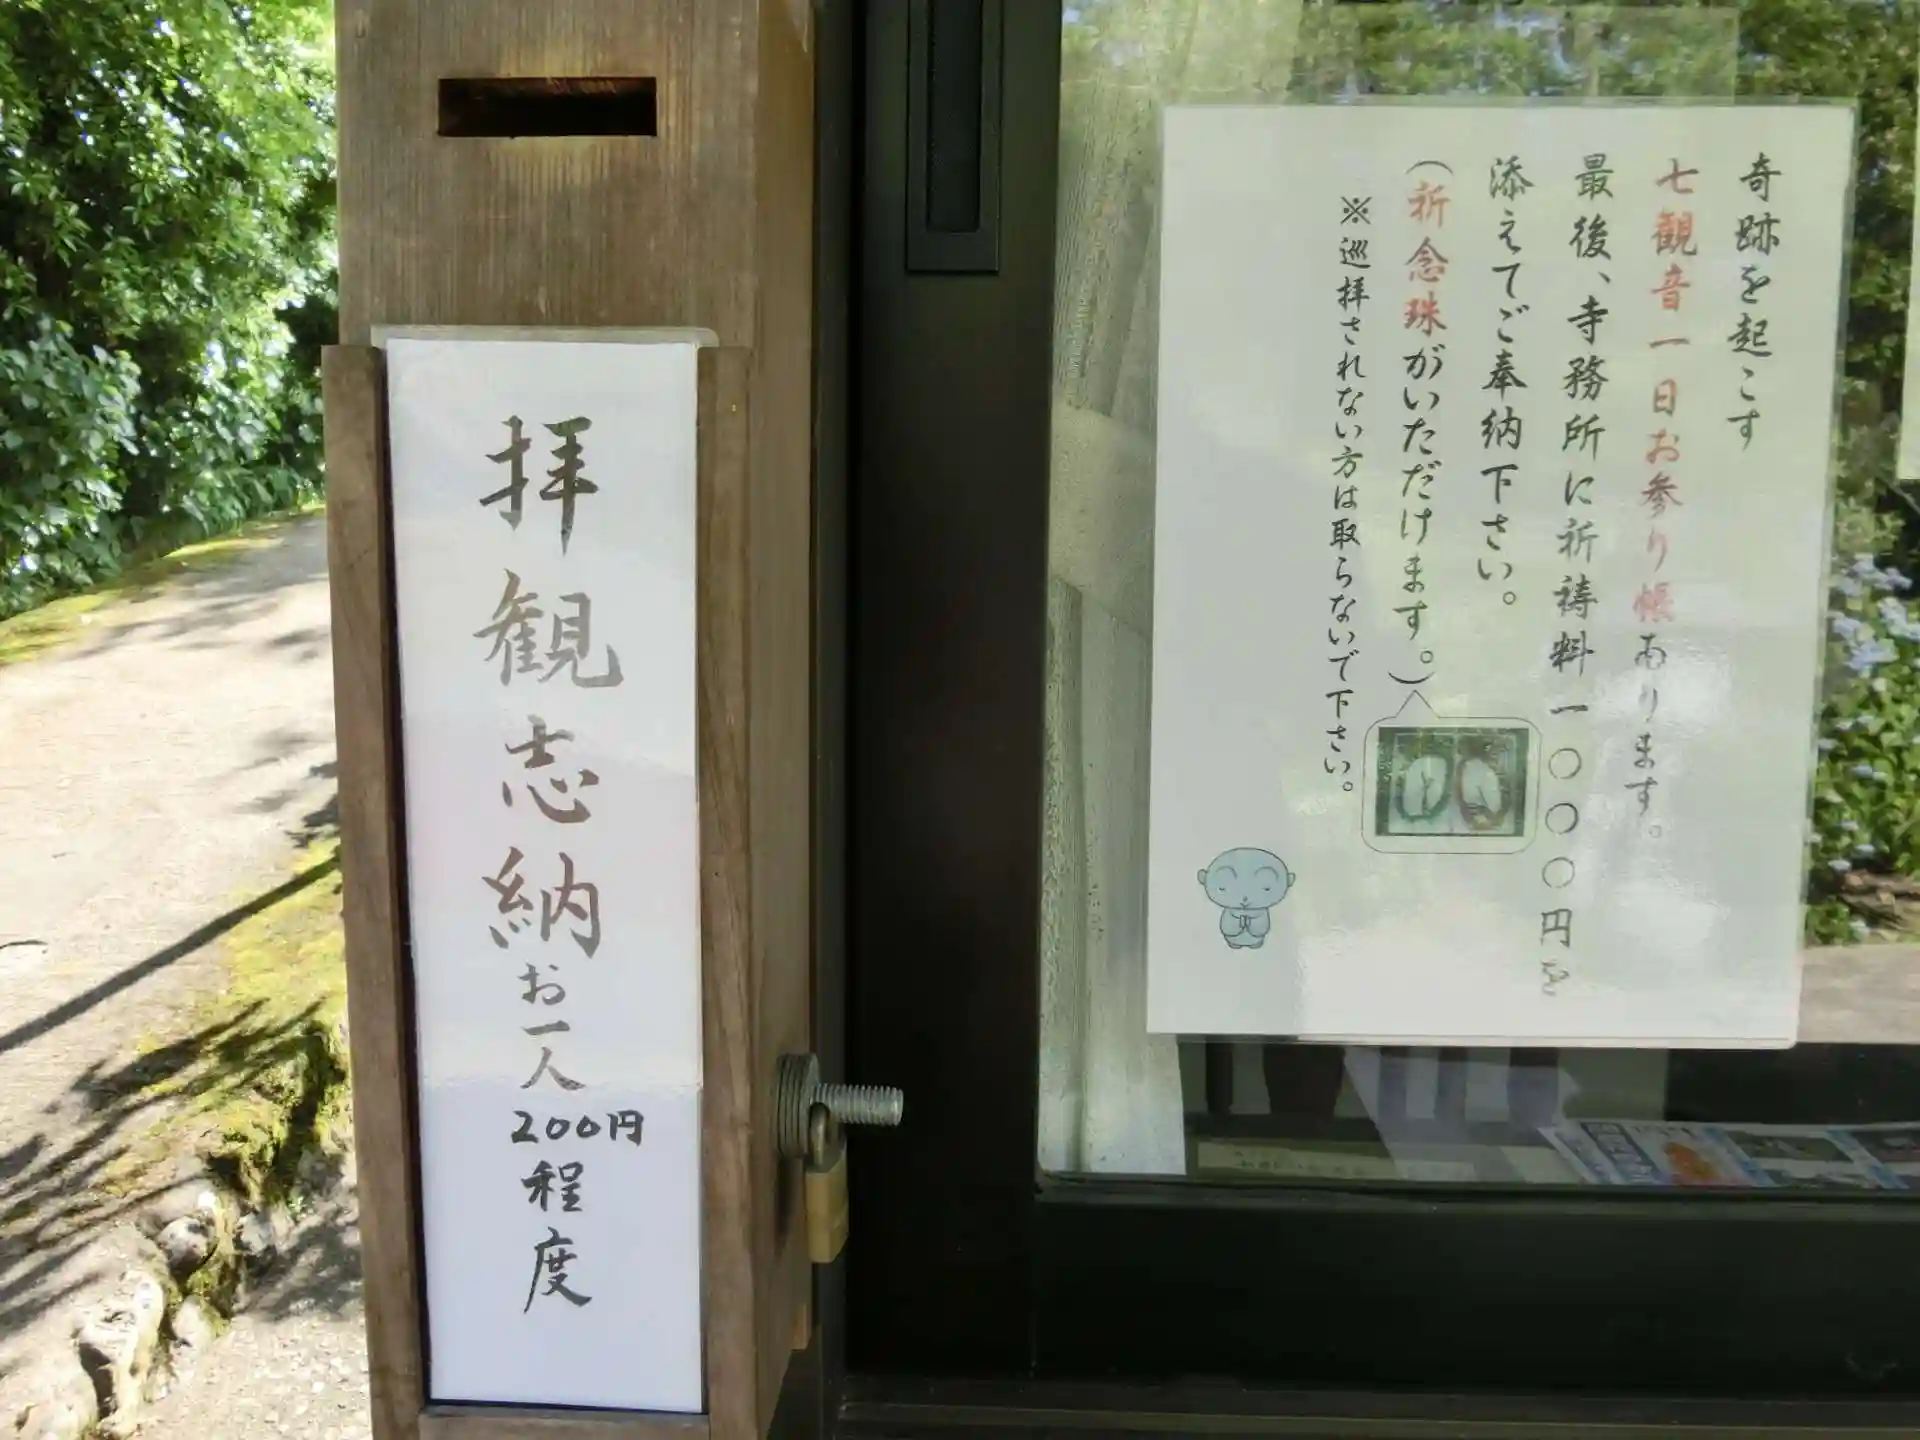 拝観志納お一人
200円
程度
奇跡を起こす
七観音一日お参り帳あります。
最後、寺務所に祈祷料一〇〇〇円を
添えてご奉納下さい。
(祈念珠がいただけます。)
※巡拝されない方は取らないで下さい。